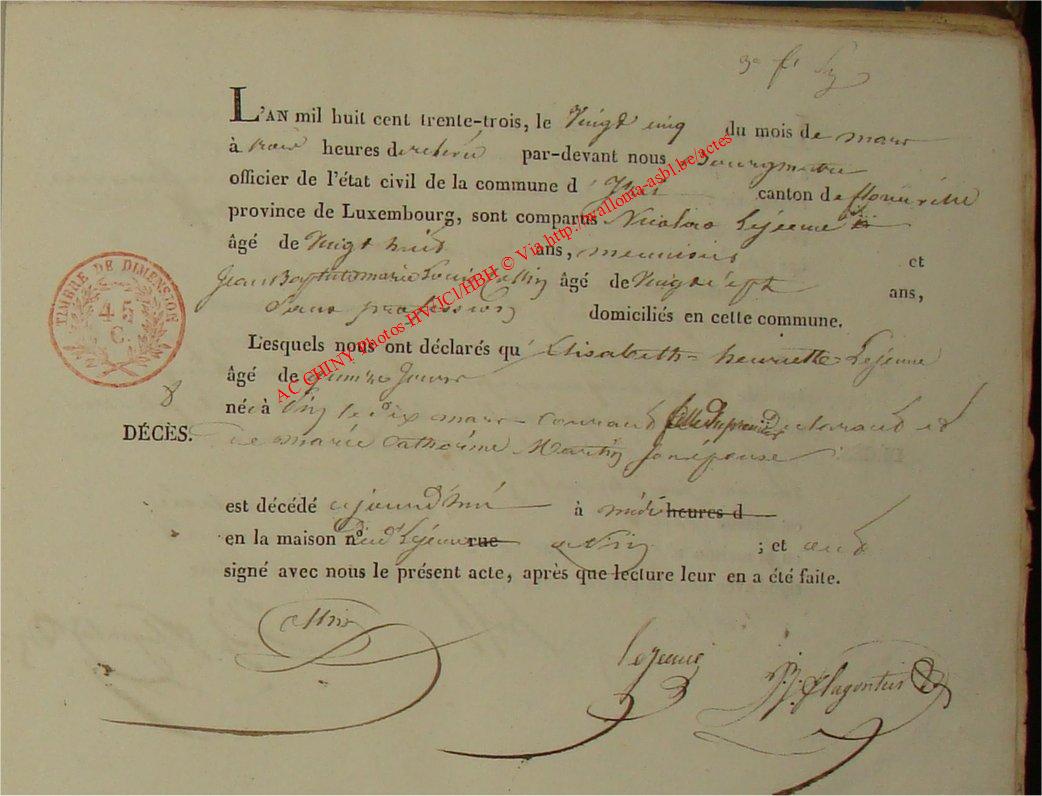 L'AN mil huit cent trente-trois, le Vingt cinq du mois de mars
à trois heures de relevé par-devant nous Bourgmestre
officier de l'état civil de la commune d canton de florenville
province de Luxembourg, sont comparus Nicolas Lejeune
âgé de Vingt huit ans, menuisier et
Jean Bap marie Louis Cassin âgé de Vingt sept ans,
Sans profession domiciliés en cette commune.
Lesquels nous ont déclarés qu' Elisabeth henriette Lejeune
âgé de quinze Jours
8
né à le dix mars courant fille du premier déclarant et
DÉCÈS.
de marie Catherine Martin son épouse
est décédé ajourd'hui à midi heures d
en la maison no dud Lejeune rue ; et ont
signé avec nous le présent acte, après que lecture leur en a été faite.
TIMBRE DE DIMENSION
45
C.
AC CHINY Photos-HV-JCl/HBH © Via http://walloma-asbl.be/actes
Lejeune